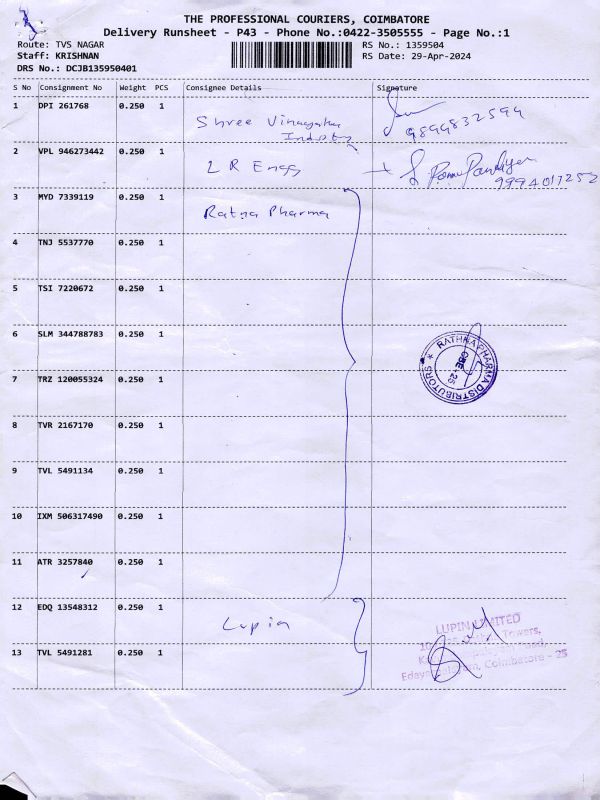 THE PROFESSIONAL COURIERS, COIMBATORE
Delivery Runsheet - P43 - Phone No.:0422-3505555 - Page No.:1
Route: TVS NAGAR RS No.: 1359504
Staff: KRISHNAN RS Date: 29-Apr-2024
DRS No.: DCJB135950401
S No Consignment No Weight PCS Consignee Details Signature
1 DPI 261768 0.250 1
Shree Vinayaka 9894832594
2 VPL 946273442 0.250 1 L R Engg
9994017252
3 MYD 7339119 0.250 1 Ratna Pharma
4 TNJ 5537770 0.250 1
5 TSI 7220672 0.250 1
6 SLM 344788783 0.250 1
RATHNA PHARMA DISTRIBUTORS
CBE-25
7 TRZ 120055324 0.250 1
8 TVR 2167170 0.250 1
9 TVL 5491134 0.250 1
10 IXM 506317490 0.250 1
11 ATR 3257840 0.250 1
12 EDQ 13548312 0.250 1 Lupin
LUPIN LIMITED
Towers,
13 TVL 5491281 0.250 1
Coimbatore - 25